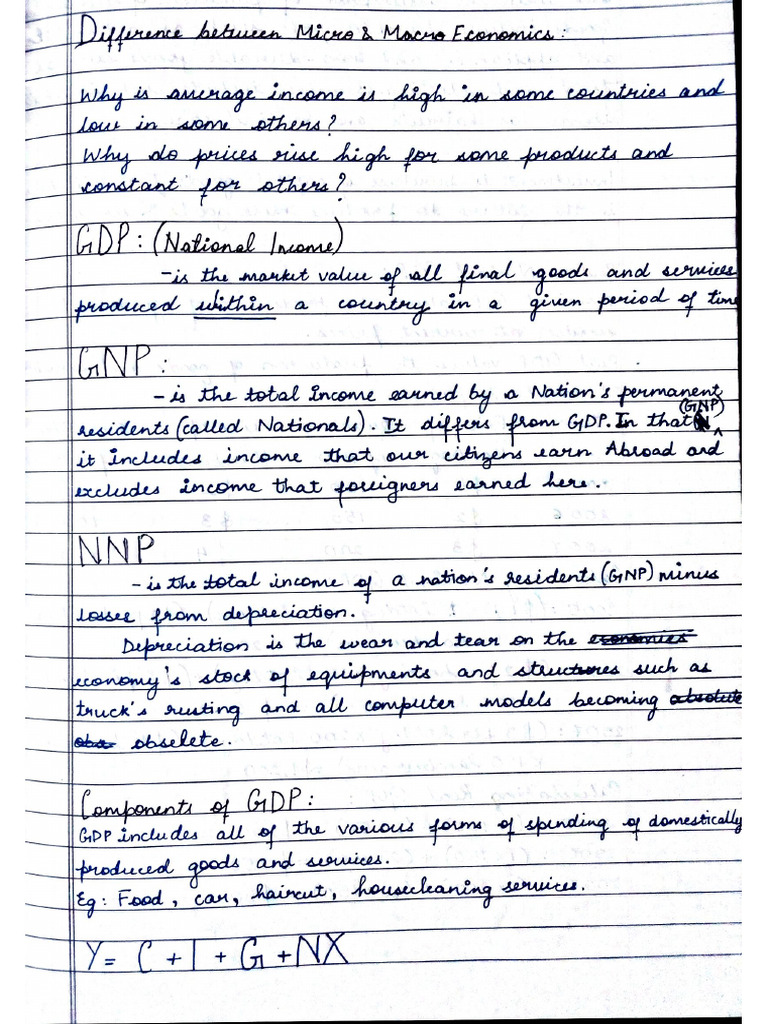 Difference between Micro & Macro Economics:
Why is average income is high in some countries and
low in some others?
Why do prices rise high for some products and
constant for others?
GDP: (National Income)
- is the market value of all final goods and services
produced within a country in a given period of time
GNP:
- is the total income earned by a Nation's permanent
residents (called Nationals). It differs from GDP. In that (GNP)
it includes income that our citizens earn Abroad and
excludes income that foreigners earned here.
NNP
- is the total income of a nation's residents (GNP) minus
losses from depreciation.
Depreciation is the wear and tear on the economies
economy's stock of equipments and structures such as
truck's rusting and all computer models becoming absolute
obs obselete.
Components of GDP:
GDP includes all of the various forms of spending of domestically
produced goods and services.
Eg: Food, car, haircut, housecleaning services.
Y = C + I + G + NX